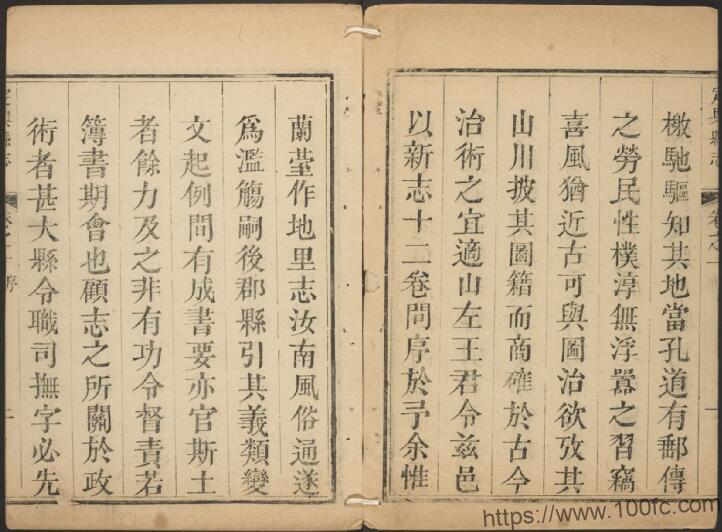 檄馳驅知其地當孔道有郵傳
之勞民性樸淳無浮囂之習竊
喜風猶近古可與圖治欲攷其
山川披其圖籍而商確於古今
治術之宜適山左王君令茲邑
以新志十二卷問序於予余惟
蘭臺作地里志汝南風俗通遂
爲濫觴嗣後郡縣引其義類變
文起例間有成書要亦官斯土
者餘力及之非有功令督責若
簿書期會也顧志之所關於政
術者甚大縣令職司撫字必先
定興縣志
卷之一
序
https://www.100fc.com